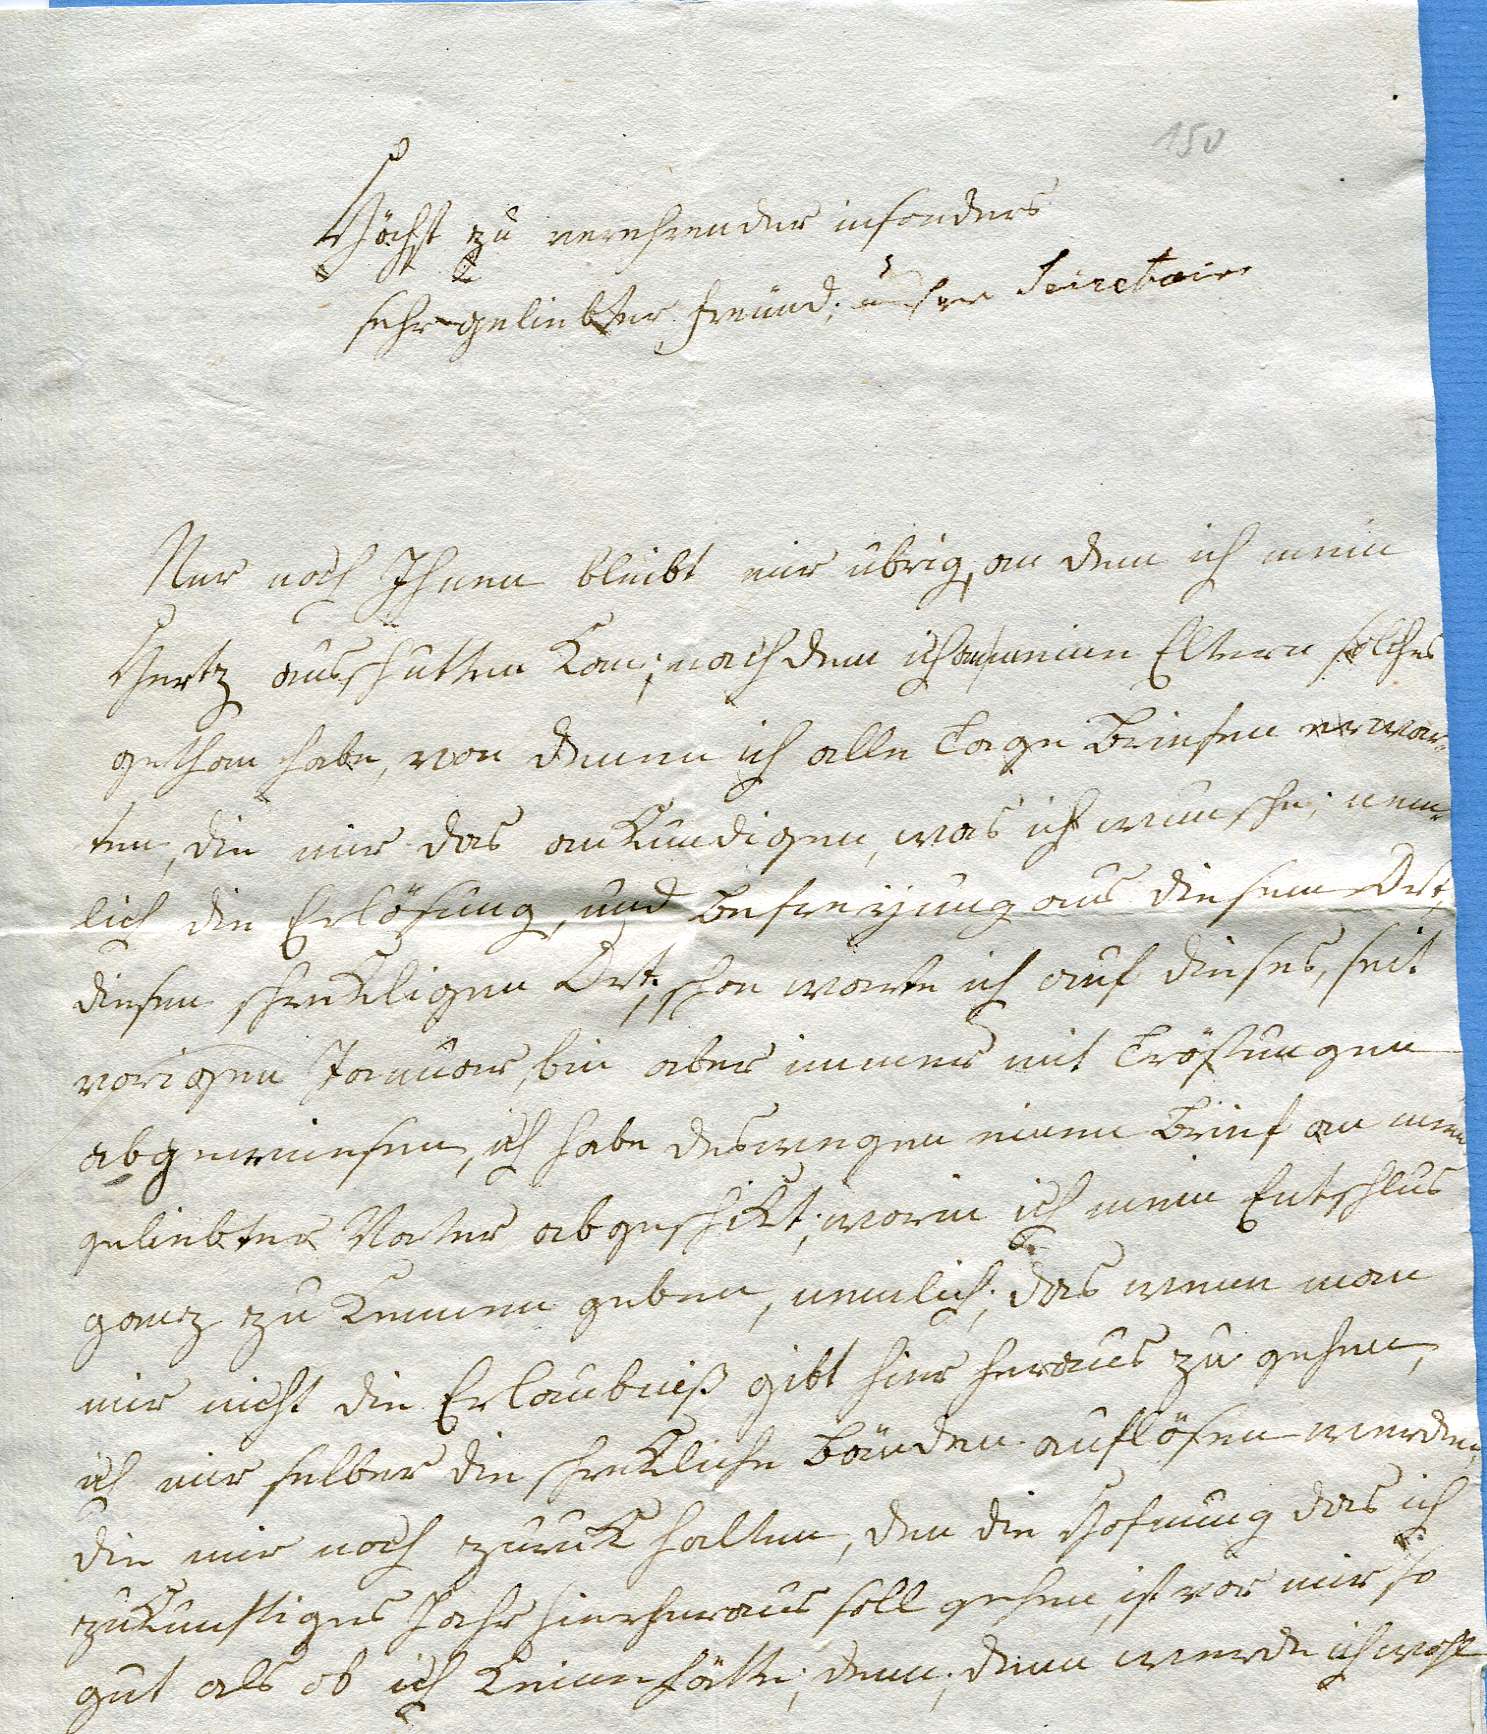 150
Höchst zu verehrender insonders
sehr geliebter Freünd; Secretair
Nur noch Ihnen bleibt mir übrig, an dem ich mein
Hertz ausshutten kan; nachdem ich an meinen Eltern solches
gethan habe, von denen ich alle Tage Briefen erwar-
ten, die mir das ankundigen, was ich wunshe; nem-
lich die Erlösung, und Befreyung aus diesem Ort,
diesen shrekligen Ort; shon warte ich auf dieses, seit
vorigen Januar, bin aber immer mit Tröstungen
abgewiesen, ich habe deswegen einen Brief an mein
geliebter Vater abgeshikt; worin ich mein Entshlus
ganz zu kennen geben, nemlich; das wenn man
mir nicht die Erlaubniß gibt hier heraus zu gehen,
ich mir selber die shrekliche Bänden auflösen werden,
die mir noch zuruk halten, den die Hofnung das ich
zukunftiges Jahr hier heraus soll gehen, ist vor mir so
gut als ob ich keine hätte; denn, denn werde ich wohl